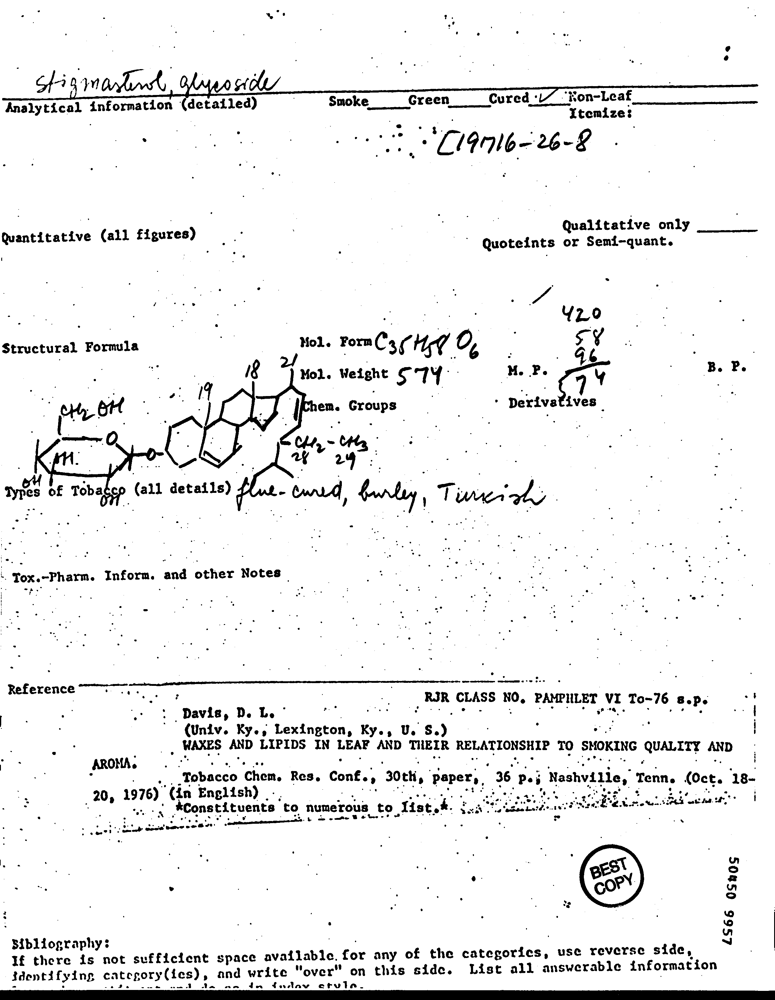 Stigmasterol, glycoside
Analytical information (detailed) Smoke Green Cured ✓ Non-Leaf
Itemize:
[19716-26-8
Qualitative only
Quantitative (all figures) Quoteints or Semi-quant.
420
58
96
574
Structural Formula Mol. Form C35H58O6
Mol. Weight 574 M. P. B. P.
Chem. Groups Derivatives
21
18
19
CH2OH
O
O
OH
OH
OH
CH2-CH3
28 29
Types of Tobacco (all details) flue-cured, burley, Turkish
Tox.-Pharm. Inform. and other Notes
Reference
RJR CLASS NO. PAMPHLET VI To-76 s.p.
Davis, D. L.
(Univ. Ky., Lexington, Ky., U. S.)
WAXES AND LIPIDS IN LEAF AND THEIR RELATIONSHIP TO SMOKING QUALITY AND
AROMA.
Tobacco Chem. Res. Conf., 30th, paper, 36 p., Nashville, Tenn. (Oct. 18-
20, 1976) (in English)
*Constituents to numerous to list.*
BEST
COPY
50450 9957
Bibliography:
If there is not sufficient space available for any of the categories, use reverse side,
identifying category(ies), and write "over" on this side. List all answerable information